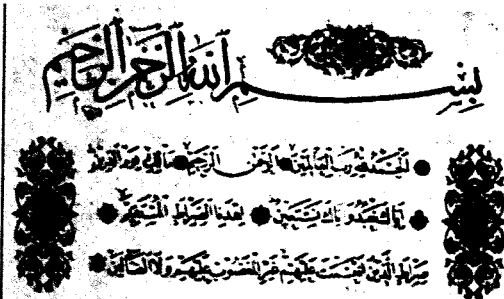 بِسْمِ اللَّهِ الرَّحْمَٰنِ الرَّحِيمِ
الْحَمْدُ لِلَّهِ رَبِّ الْعَالَمِينَ الرَّحْمَٰنِ الرَّحِيمِ مَالِكِ يَوْمِ الدِّينِ
إِيَّاكَ نَعْبُدُ وَإِيَّاكَ نَسْتَعِينُ اهْدِنَا الصِّرَاطَ الْمُسْتَقِيمَ
صِرَاطَ الَّذِينَ أَنْعَمْتَ عَلَيْهِمْ غَيْرِ الْمَغْضُوبِ عَلَيْهِمْ وَلَا الضَّالِّينَ